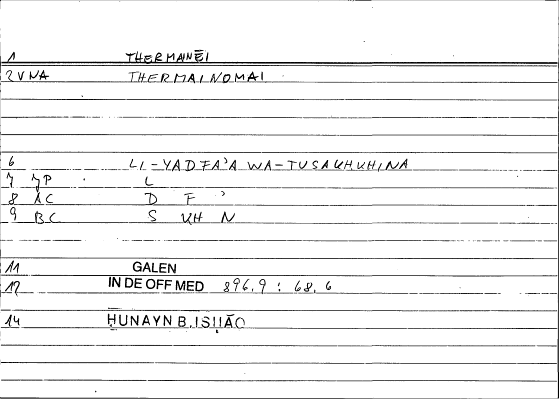 1 THERMAINĒI
2 VNA THERMAINOMAI
6 LI-YADFA'A WA-TUSAKHKHINA
7 JP L
8 AC D F '
9 BC S KH N
11 GALEN
12 IN DE OFF MED 896.9 : 68.6
14 ḤUNAYN B. ISḤĀQ